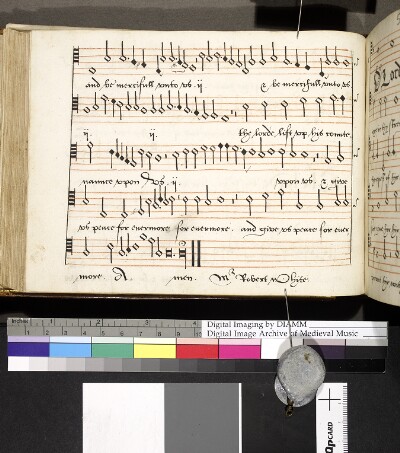 and be mercifull vnto vs . ij & be mercifull vnto vs
ij. ij. the lorde lift vp his counte
naunce vpon vs . ij . vpon vs . & give
vs peace for euermore for euermore . and give vs peace for euer
more . A men . Mr Robert White
Lord
Digital Imaging by DIAMM
Digital Image Archive of Medieval Music